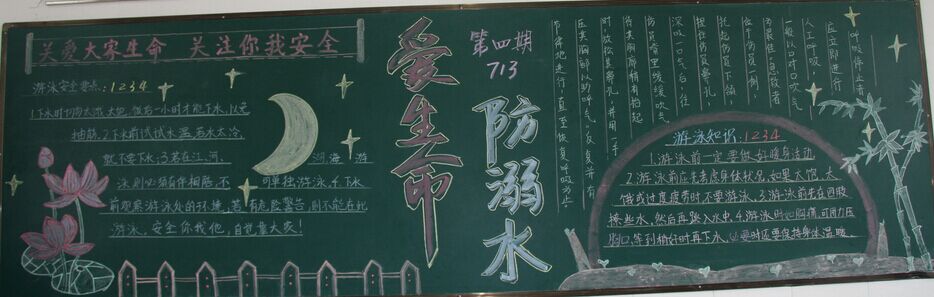 关爱大家生命 关注你我安全
游泳安全要点:1234
1.下水时切勿太饿、太饱,饭后一小时才能下水,以免
抽筋,2.下水前试试水温,若水太冷,
就不要下水;3.若在江、河、湖、海游
泳则必须有伴相陪,不可单独游泳,4.下水
前观察游泳处的环境,若有危险警告,则不能在此
游泳,安全你我他,自觉靠大家!
爱生命
第四期
713
防溺水
呼吸停止者,
应立即进行
人工呼吸,
一般以口对口吹气
位于伤员一侧,
托起伤员下颌,
捏住伤员鼻孔,
深吸一口气后,往
伤员嘴里缓缓吹气,
待其胸廓稍有抬起
时,放松其鼻孔,并用一手
压其胸部以助呼气。反复并有
节律地进行,直至恢复呼吸为止。
游泳知识:1234
1.游泳前一定要做好暖身活动
2.游泳前应先考虑身体状况,如果太饱、太
饿或过度疲劳时不要游泳,3.游泳前先在四肢
擦些水,然后再跳入水中,4.游泳时如胸痛,可用力压
胸口,等到稍好时再下水,必要时还要保持身体温暖、